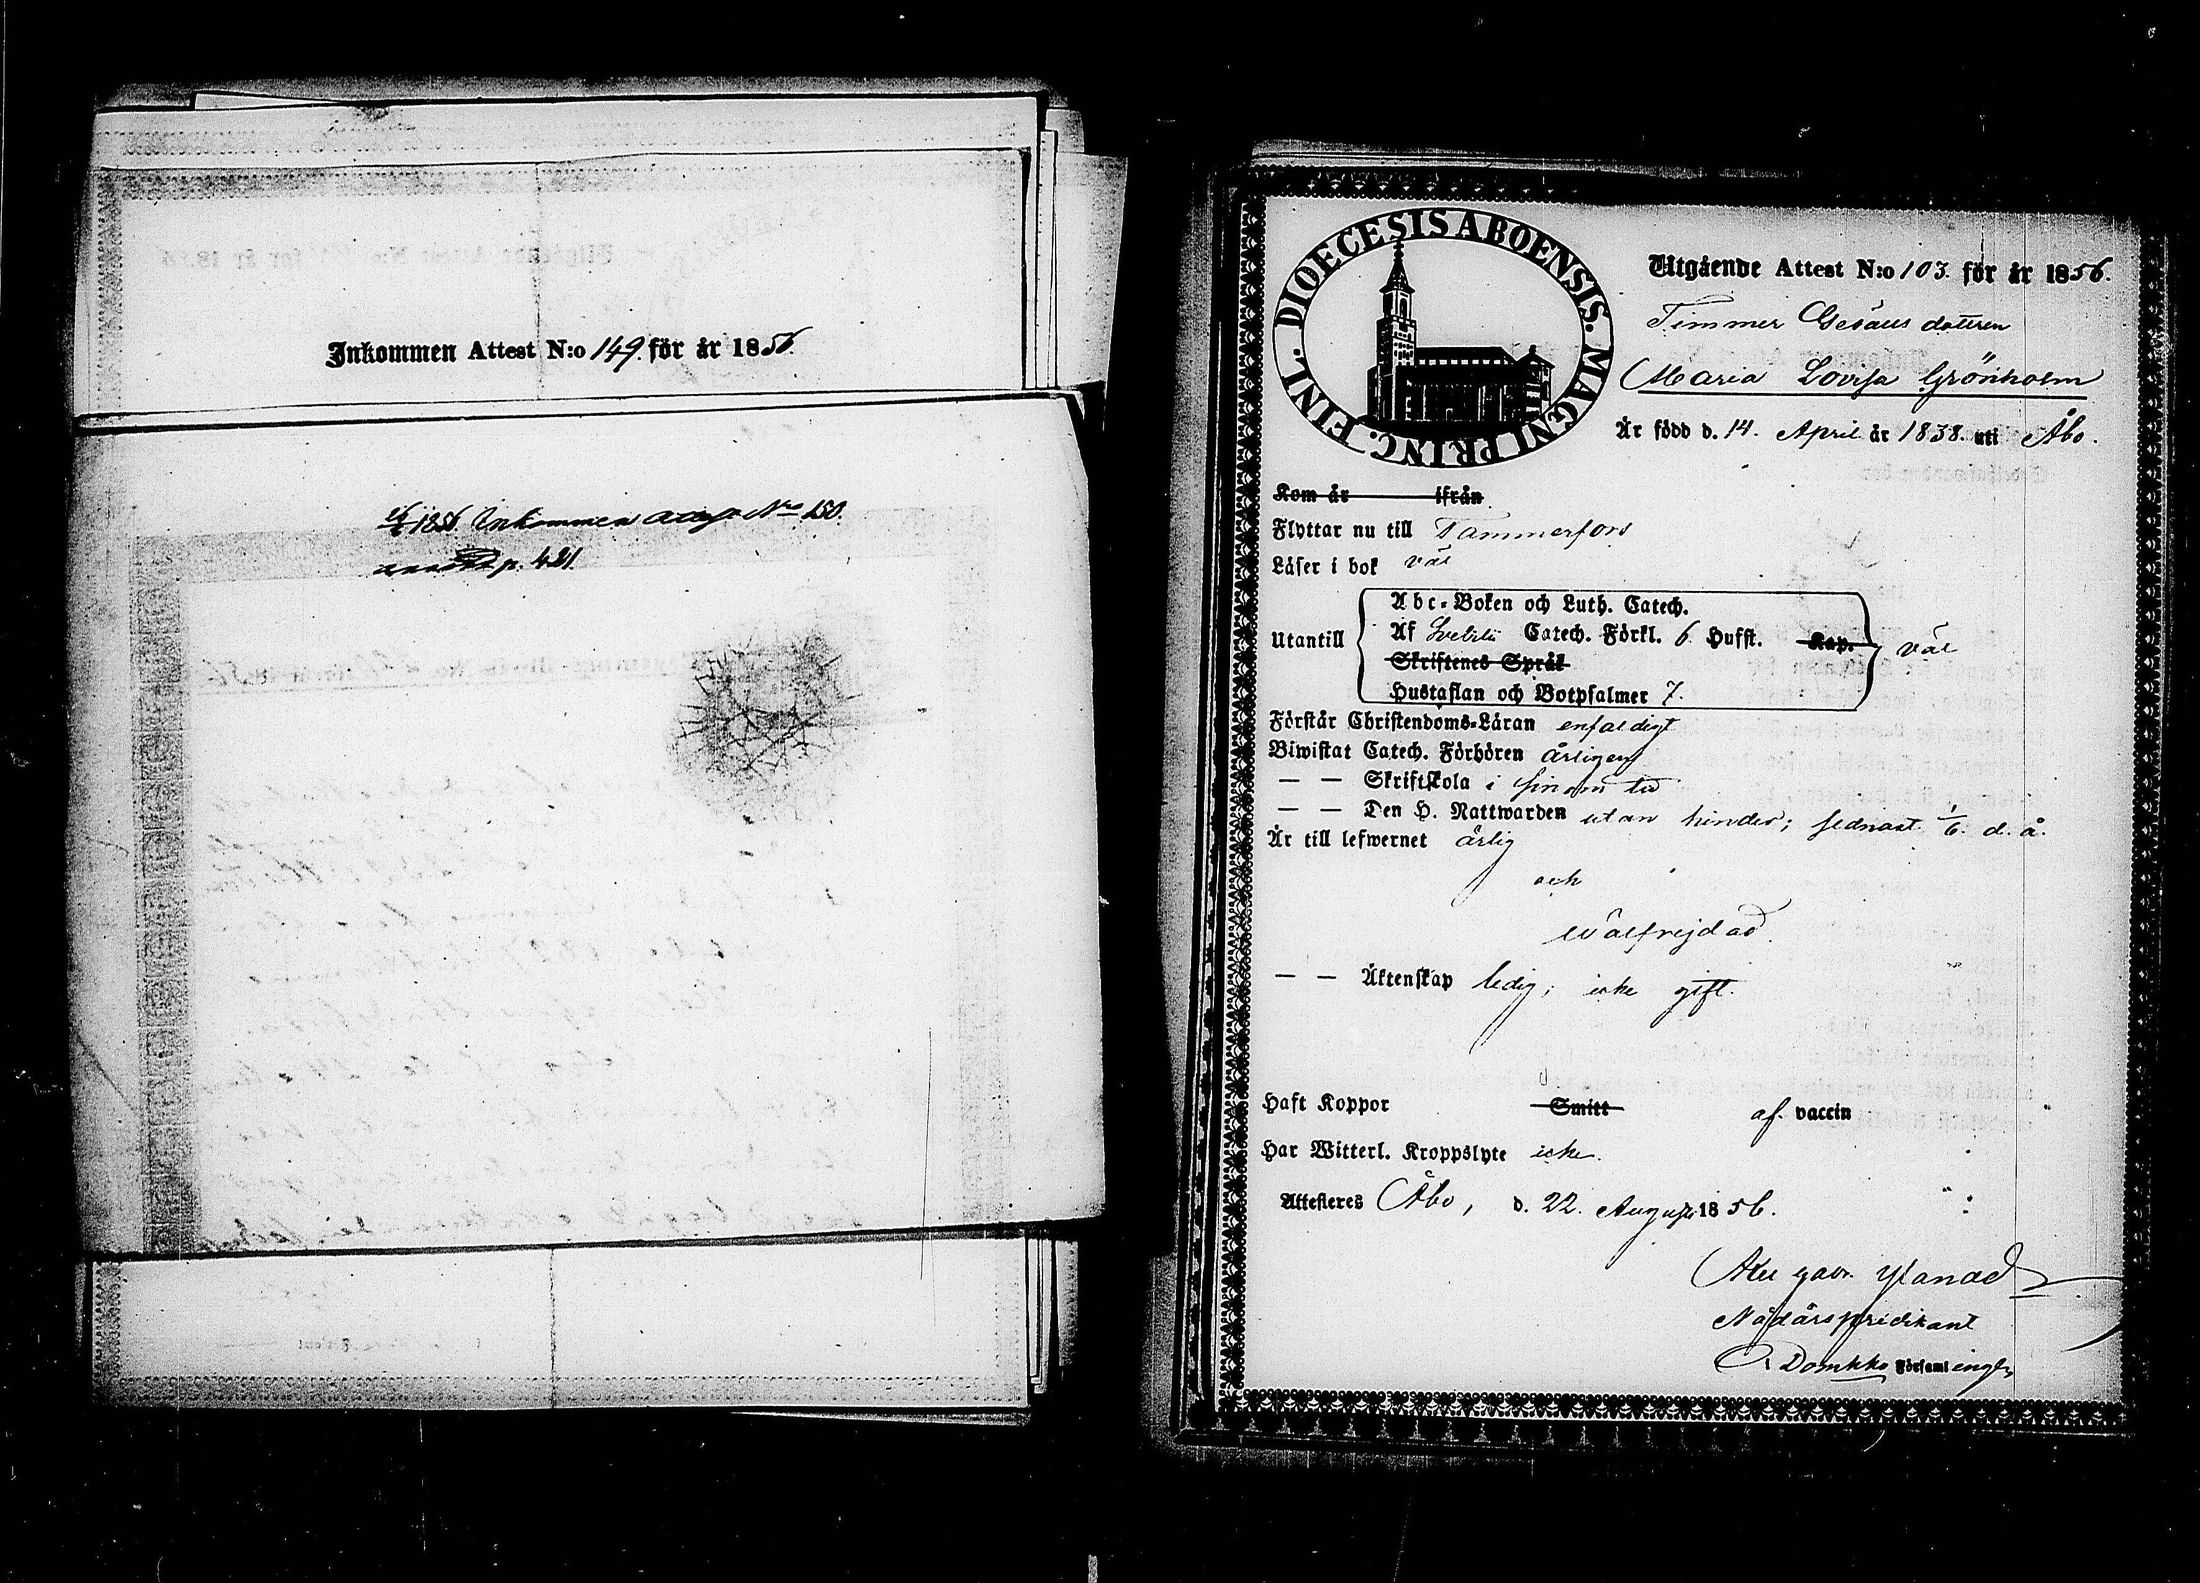 Inkommen Attest N:o 149. för år 1856.
1856. Inkommen Attest No 150.
p. 421.
DIOECESIS ABOENSIS. MAGNI PRINC. FINL.
Utgående Attest N:o 103. för år 1856.
Timmer Gesäls dottren
Maria Lovisa Grönholm
Är född d. 14. April år 1838. uti Åbo.
Kom år ifrån
Flyttar nu till Tammerfors
Läser i bok väl
Utantill
Abc-Boken och Luth. Catech.
Af Svebilii Catech. Förkl. 6 Hufst. Kap. väl
Skriftenes Språk
Hustaflan och Botpsalmer 7.
Förstår Christendoms-Läran enfaldigt
Biwistat Catech. Förhören årligen
— — Skriftskola i sinom tid
— — Den H. Nattwarden utan hinder; sednast 1/6. d. å.
Är till lefwernet ärlig
och
wälfrejdad.
— — Äktenskap ledig; icke gift.
Haft Koppor Smitt af. vaccin
Har Witterl. Kroppslyte icke.
Attesteras Åbo, d. 22. Augusti 1856.
Nådårspredikant
Domkko Församlingen